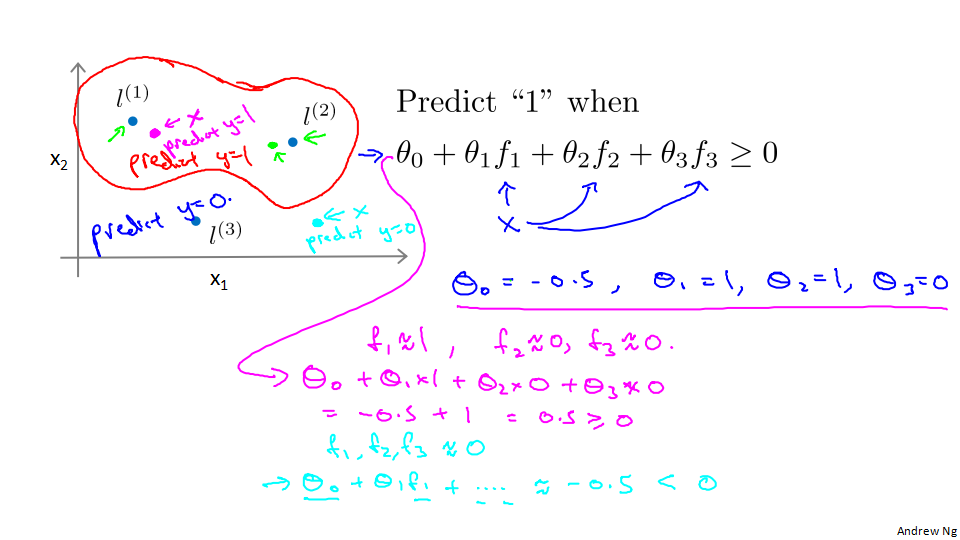 l^{(1)}
← x
predict y=1
l^{(2)}
predict y=1
x₂
predict y=0.
l^{(3)}
← x
predict y=0
x₁
Predict “1” when
→ θ₀ + θ₁f₁ + θ₂f₂ + θ₃f₃ ≥ 0
x
θ₀ = -0.5 , θ₁ = 1, θ₂=1, θ₃=0
f₁≈1 , f₂≈0, f₃≈0.
→ θ₀ + θ₁×1 + θ₂×0 + θ₃×0
= -0.5 + 1 = 0.5 ≥ 0
f₁, f₂, f₃ ≈ 0
→ θ₀ + θ₁f₁ + .... ≈ -0.5 < 0
Andrew Ng